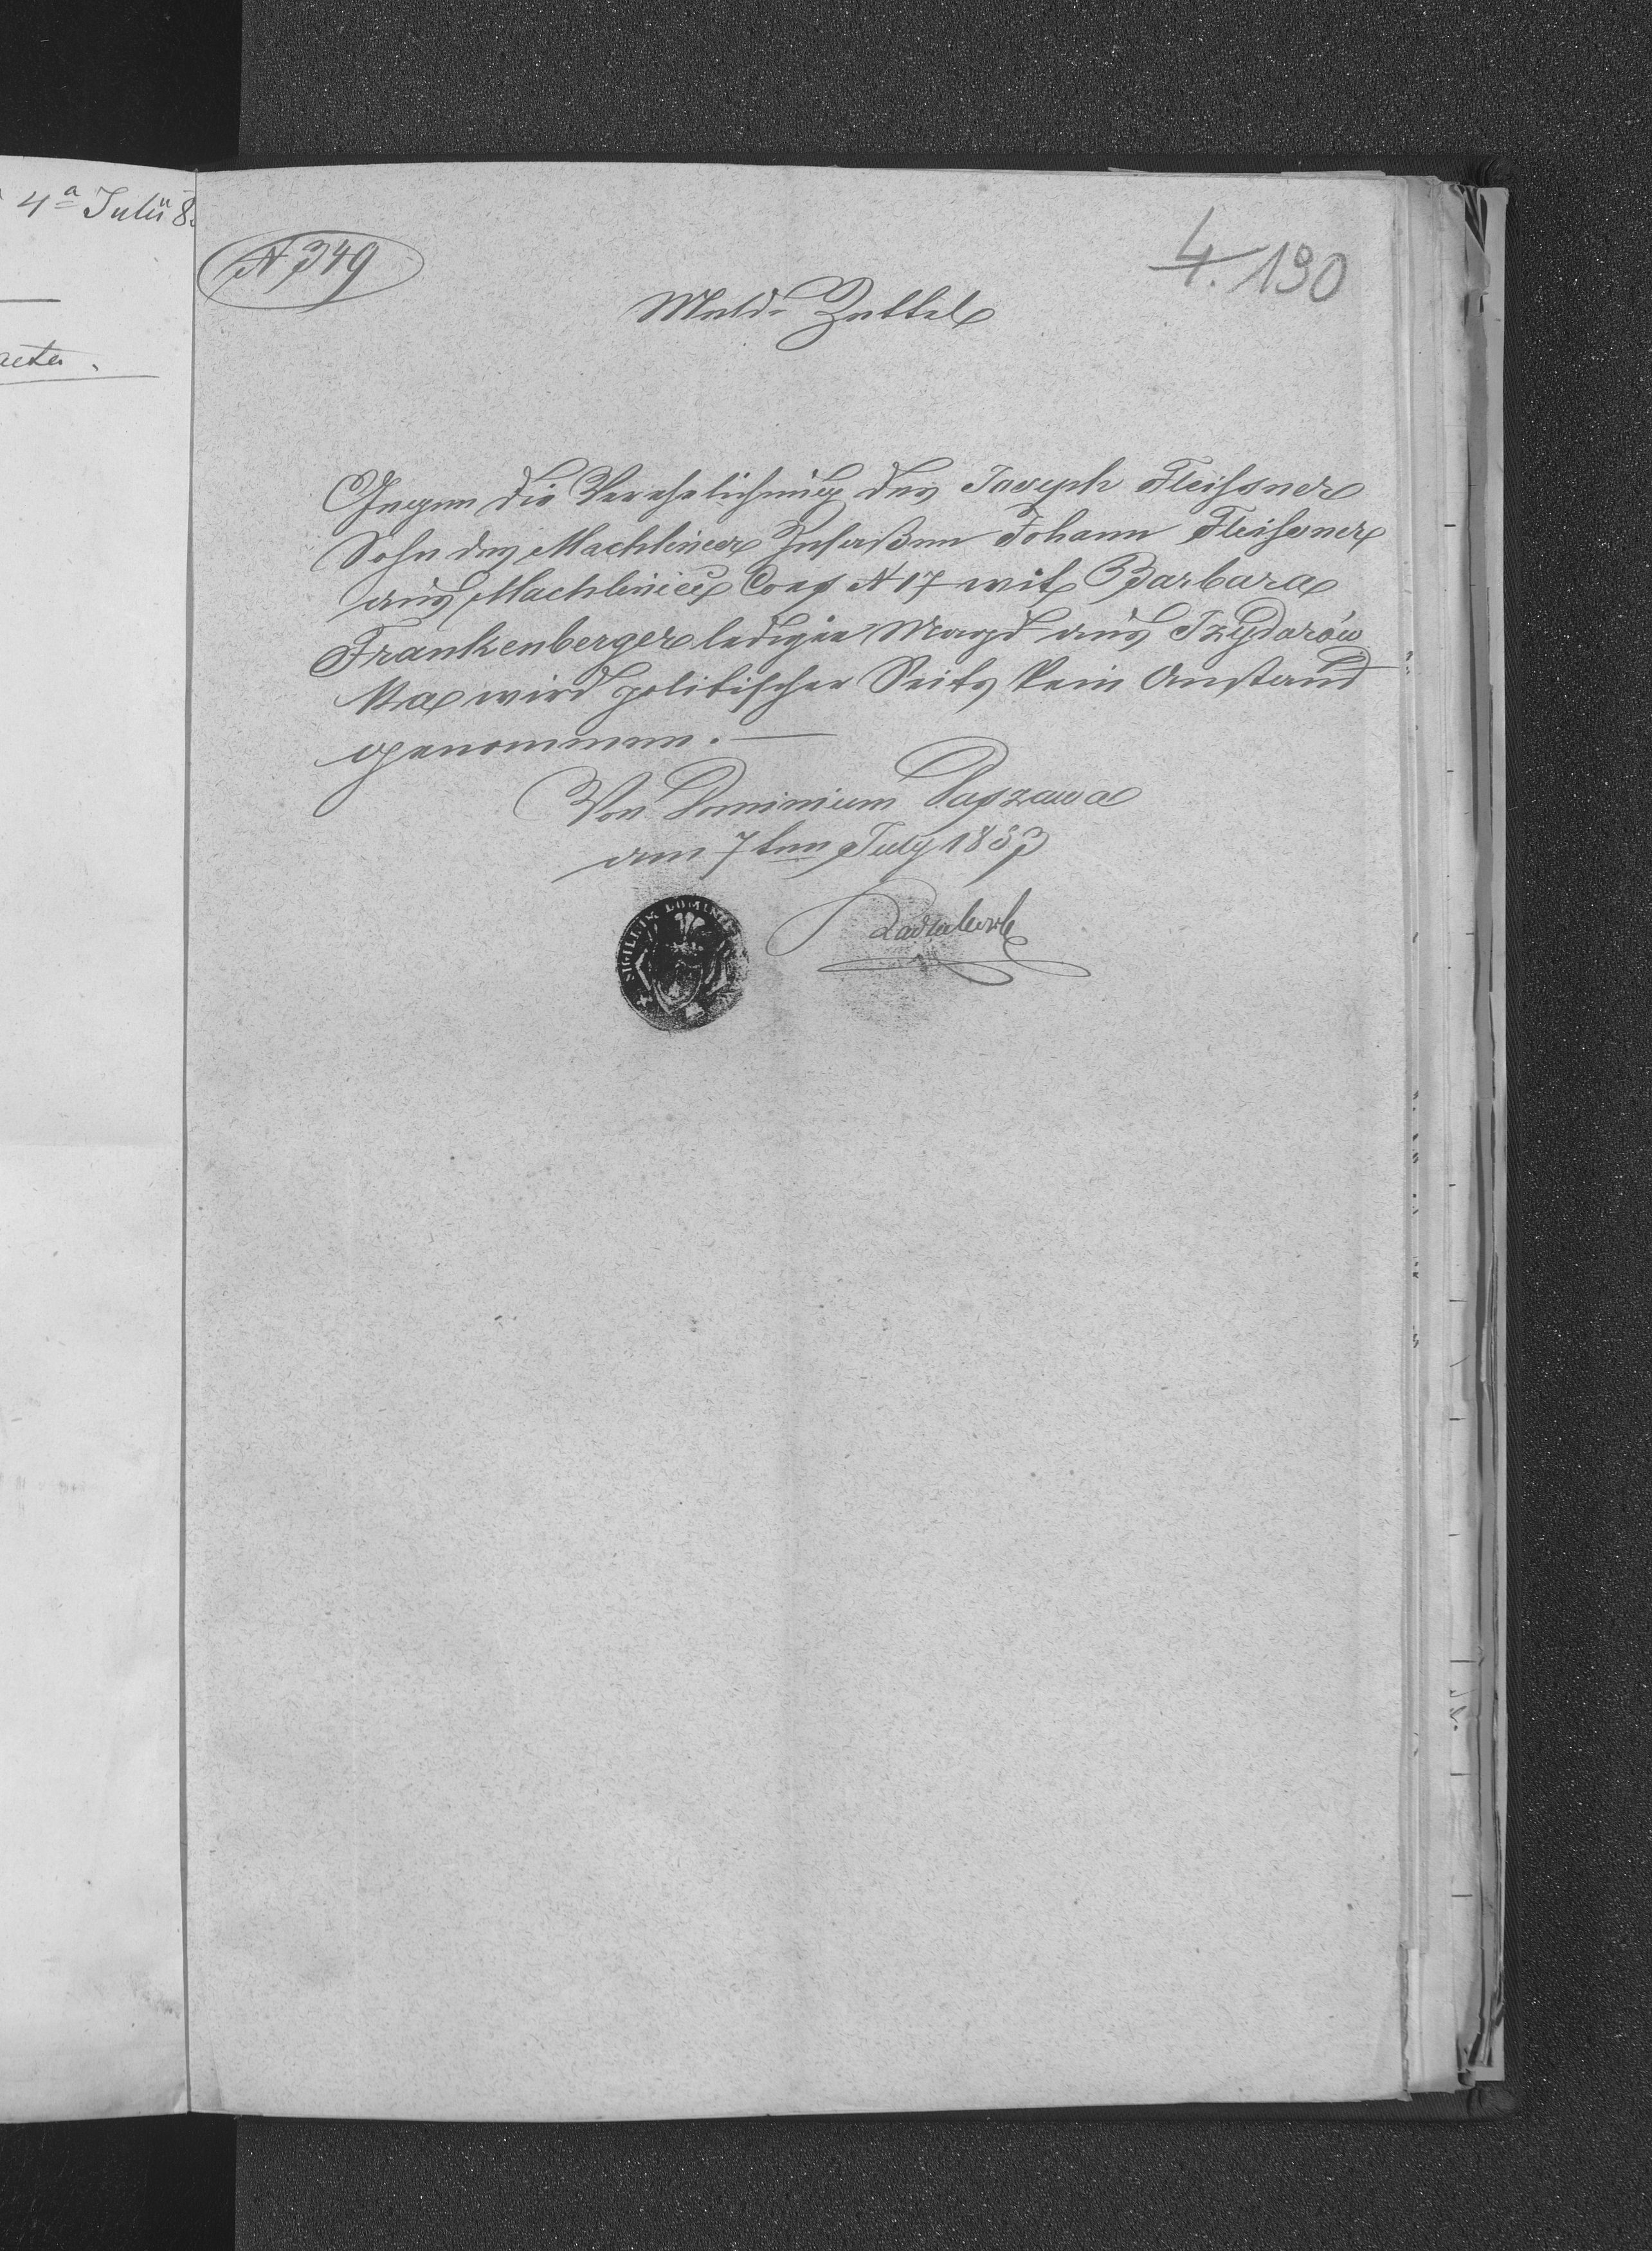 4ª Julii 8
acta.
N 349
4. 190
Meld-Zettel
Gegen die Verehelichung des Joseph Fleißner
Sohn des Machliniecer Insaßen Johann Fleißner
aus Machliniec Cons N 17 mit Barbara
Frankenberger ledigen Magd aus Izydorów
ka wird politischer Seits kein Anstand
genommen. —
Von Dominium Daszawa
am 7ten July 1853
SIGILLUM DOMINII